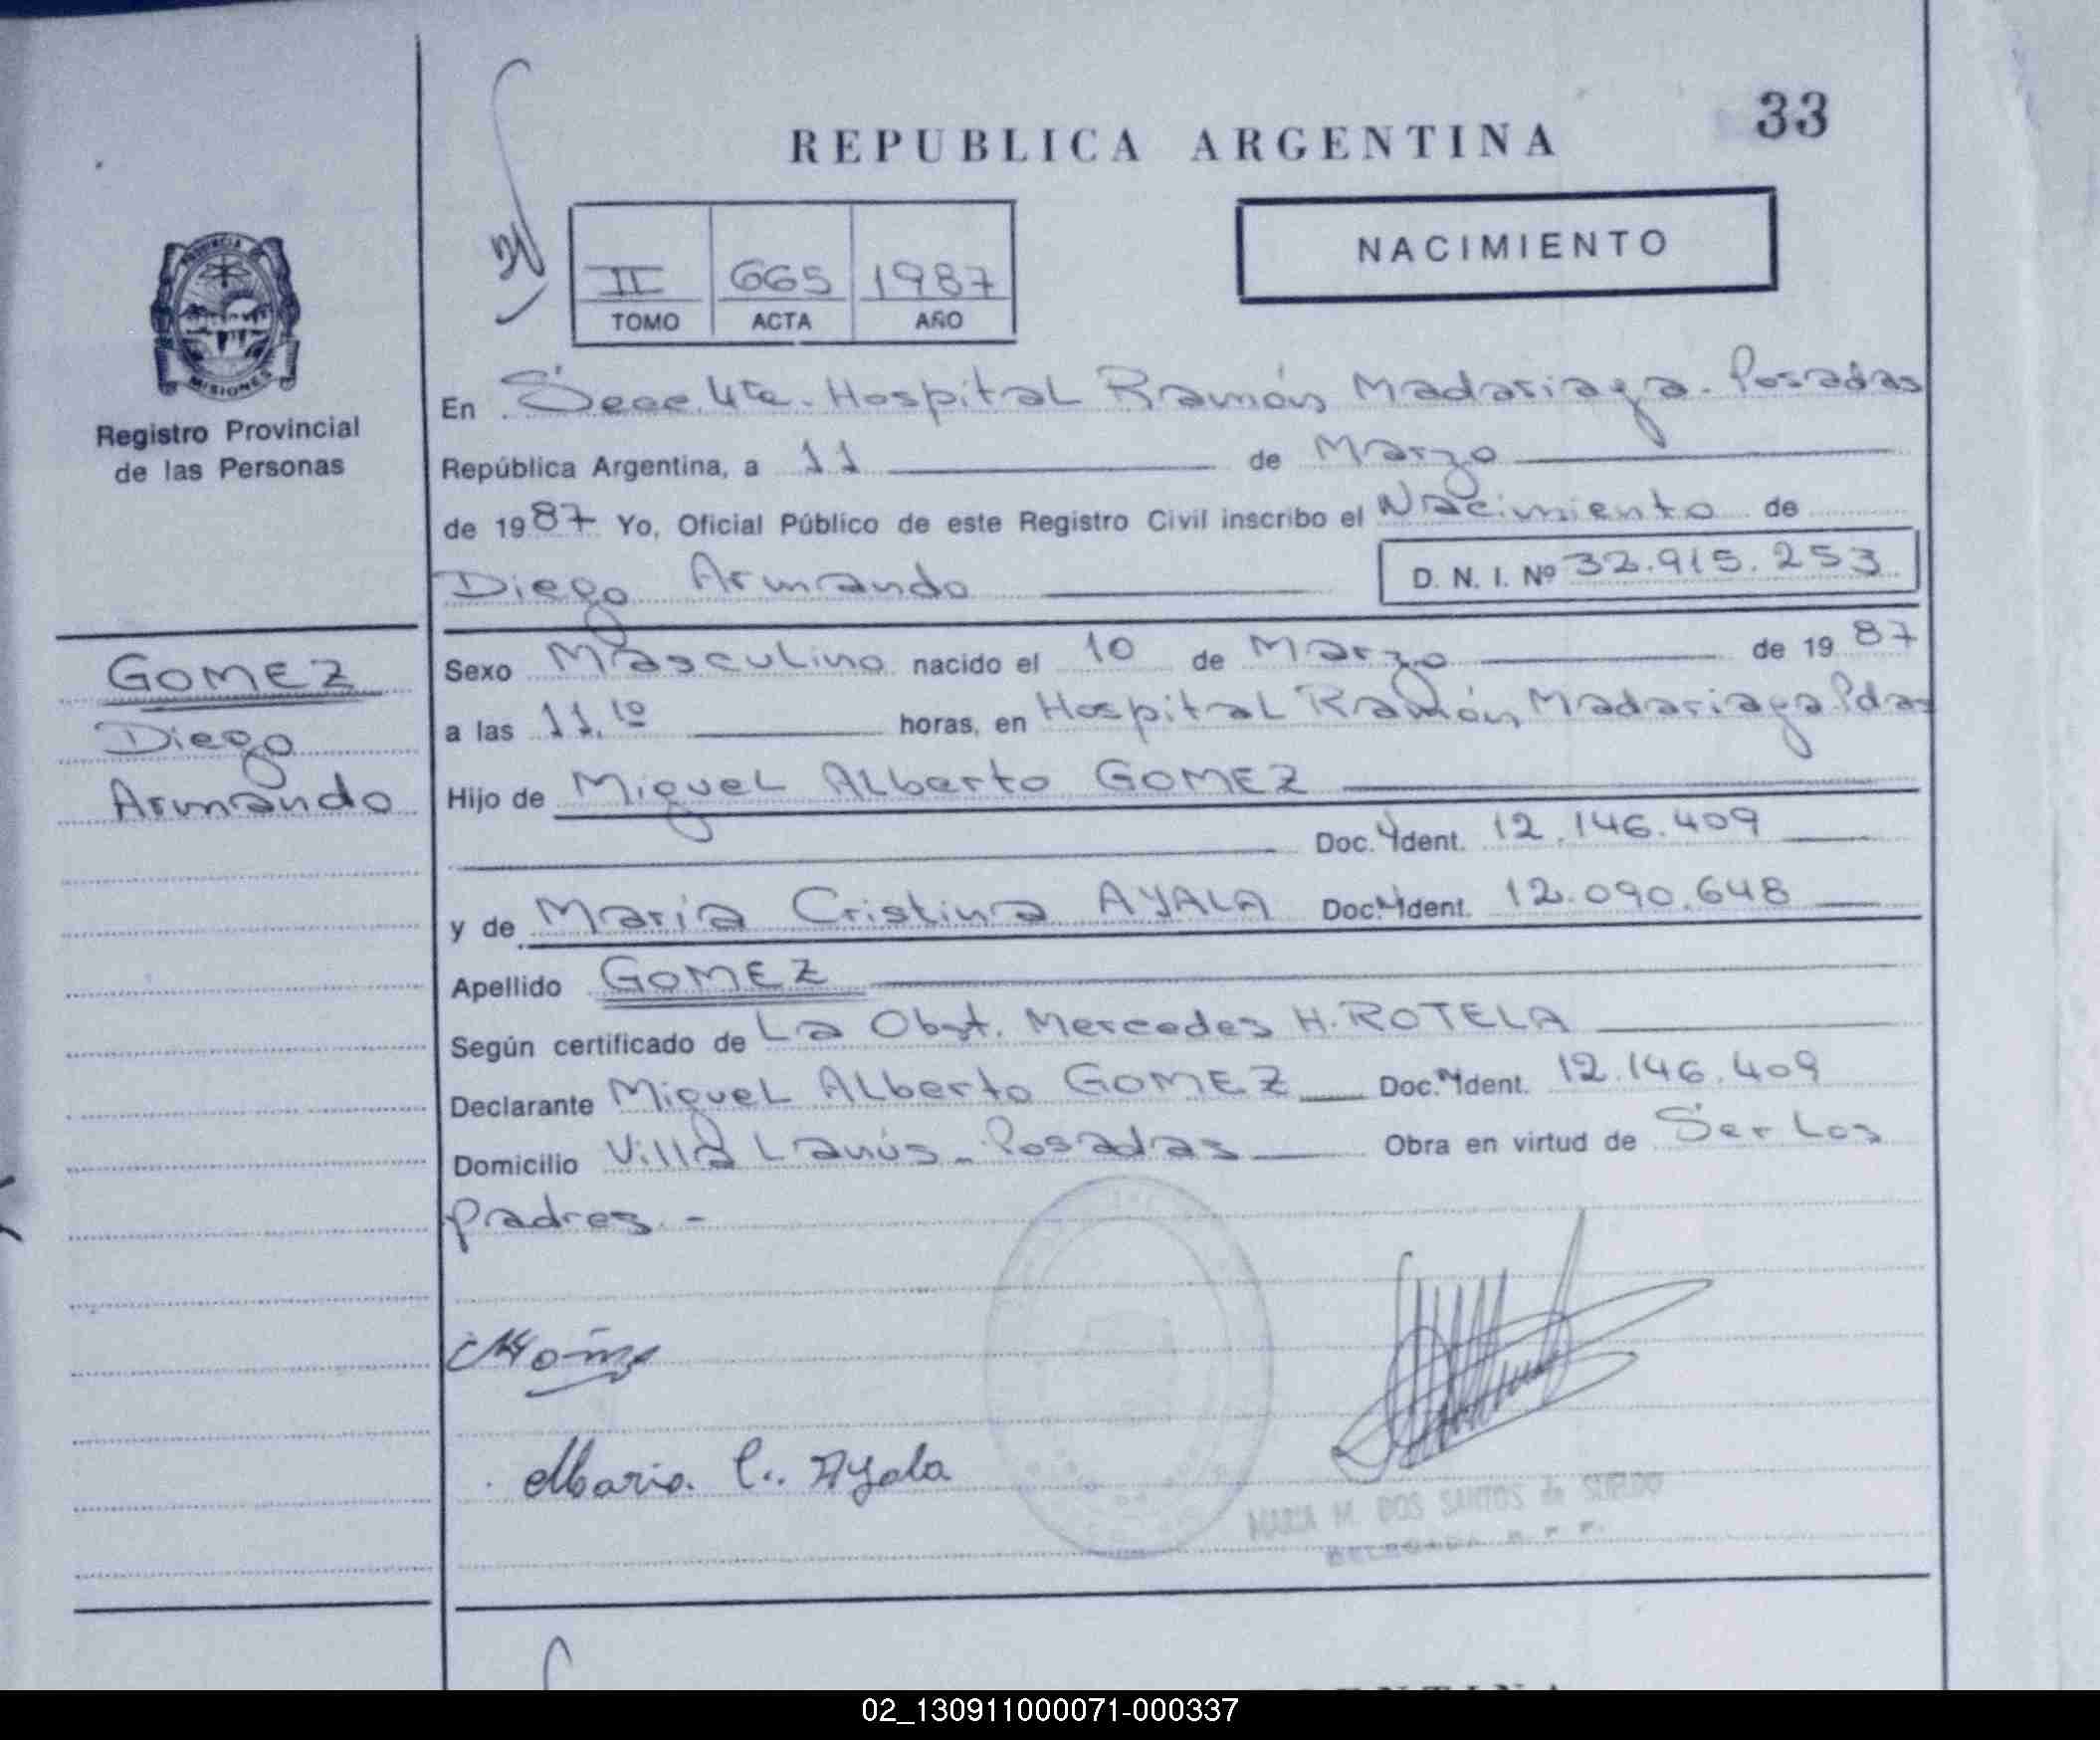 33
REPUBLICA ARGENTINA
NACIMIENTO
II 665 1987
TOMO ACTA AÑO
PROVINCIA
MISIONES
Registro Provincial
de las Personas
En Secc. 4ta. Hospital Ramón Madariaga - Posadas
República Argentina, a 11 de Marzo
de 1987 Yo, Oficial Público de este Registro Civil inscribo el Nacimiento de
Diego Armando D. N. I. Nº 32.915.253
GOMEZ
Diego
Armando
Sexo Masculino nacido el 10 de Marzo de 1987
a las 11.10 horas, en Hospital Ramón Madariaga Pdas
Hijo de Miguel Alberto GOMEZ
Doc. Ident. 12.146.409
y de María Cristina AYALA Doc. Ident. 12.090.648
Apellido GOMEZ
Según certificado de La Obst. Mercedes H. ROTELA
Declarante Miguel Alberto GOMEZ Doc. Ident. 12.146.409
Domicilio Villa Lanús - Posadas Obra en virtud de Ser los
padres. -
Maria C. Ayala
MARIA M. DOS SANTOS de SUELDO
02_130911000071-000337